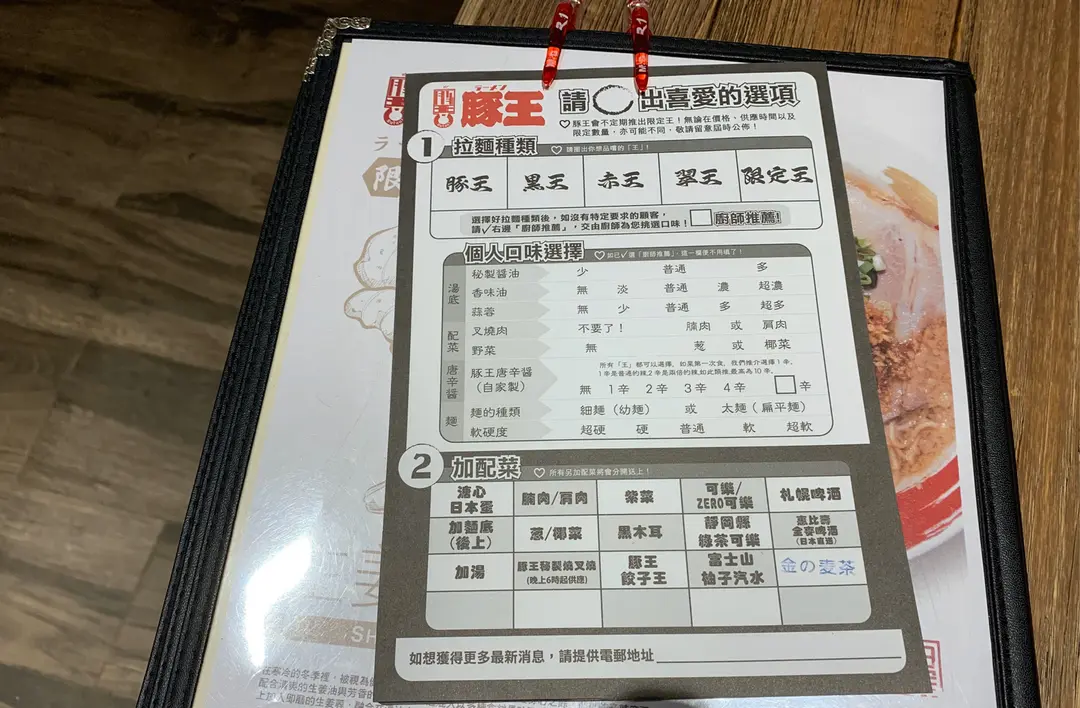 R1
R1
ラーメン
豚王 請○出喜愛的選項
♡豚王會不定期推出限定王!無論在價格、供應時間以及
限定數量,亦可能不同,敬請留意屆時公佈!
1 拉麵種類 ♡請圈出你想品嚐的「王」!
豚王 黒王 赤王 翠王 限定王
選擇好拉麵種類後,如沒有特定要求的顧客,
請✓右邊「廚師推薦」,交由廚師為您挑選口味! □廚師推薦!
個人口味選擇 ♡如已✓選「廚師推薦」,這一欄便不用填了!
湯底
秘製醬油 少 普通 多
香味油 無 淡 普通 濃 超濃
蒜蓉 無 少 普通 多 超多
配菜
叉燒肉 不要了! 腩肉 或 肩肉
野菜 無 葱 或 椰菜
唐辛醬
豚王唐辛醬
(自家製)
所有「王」都可以選擇,如是第一次食,我們推介選擇1辛。
1辛是普通的辣,2辛是兩倍的辣,如此類推,最高為10辛。
無 1辛 2辛 3辛 4辛 □辛
麵
麵的種類 細麵(幼麵) 或 太麵(扁平麵)
軟硬度 超硬 硬 普通 軟 超軟
2 加配菜 ♡所有另加配菜將會分開送上!
溏心
日本蛋
腩肉/肩肉
紫菜
可樂/
ZERO可樂
札幌啤酒
加麵底
(後上)
葱/椰菜
黑木耳
靜岡縣
綠茶可樂
惠比壽
全麥啤酒
(日本直送)
加湯
豚王秘製燒叉燒
(晚上6時起供應)
豚王
餃子王
富士山
柚子汽水
金の麦茶
如想獲得更多最新消息,請提供電郵地址
ラ
限
SH
在寒冷的冬季裡